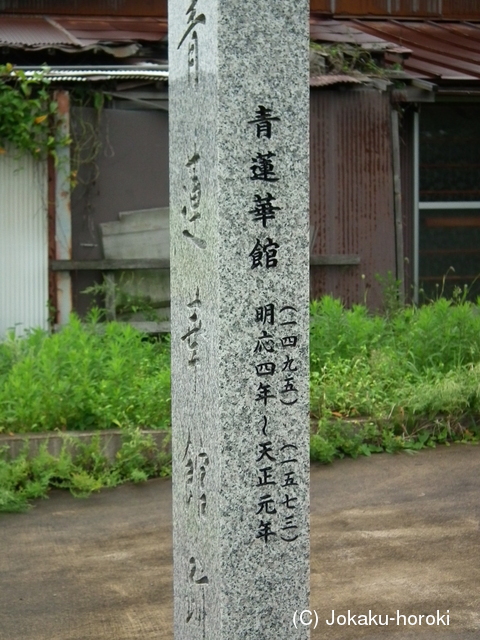 青蓮華館之跡
青蓮華館
明応四年～天正元年
(一四九五) (一五七三)
(C) Jokaku-horoki